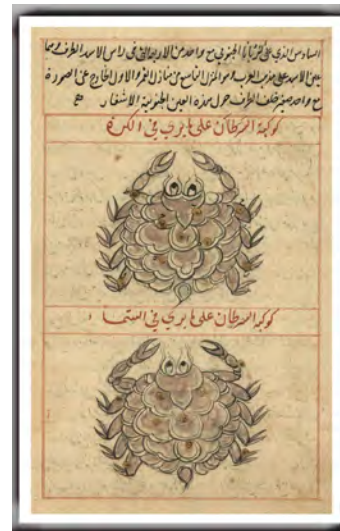 السادس الذي على الزبانا الجنوبي مع واحد من الاربعة التي في راس الاسد الطرف وهما
عينا الاسد على مذهب العرب وهو المنزل التاسع من منازل القمر والاول الخارج عن الصورة
مع واحد صغير خلف الطرف حول هذه العين الجنوبية الاشفار
كوكبة السرطان على ما يرى في الكرة
كوكبة السرطان على ما يرى في السماء